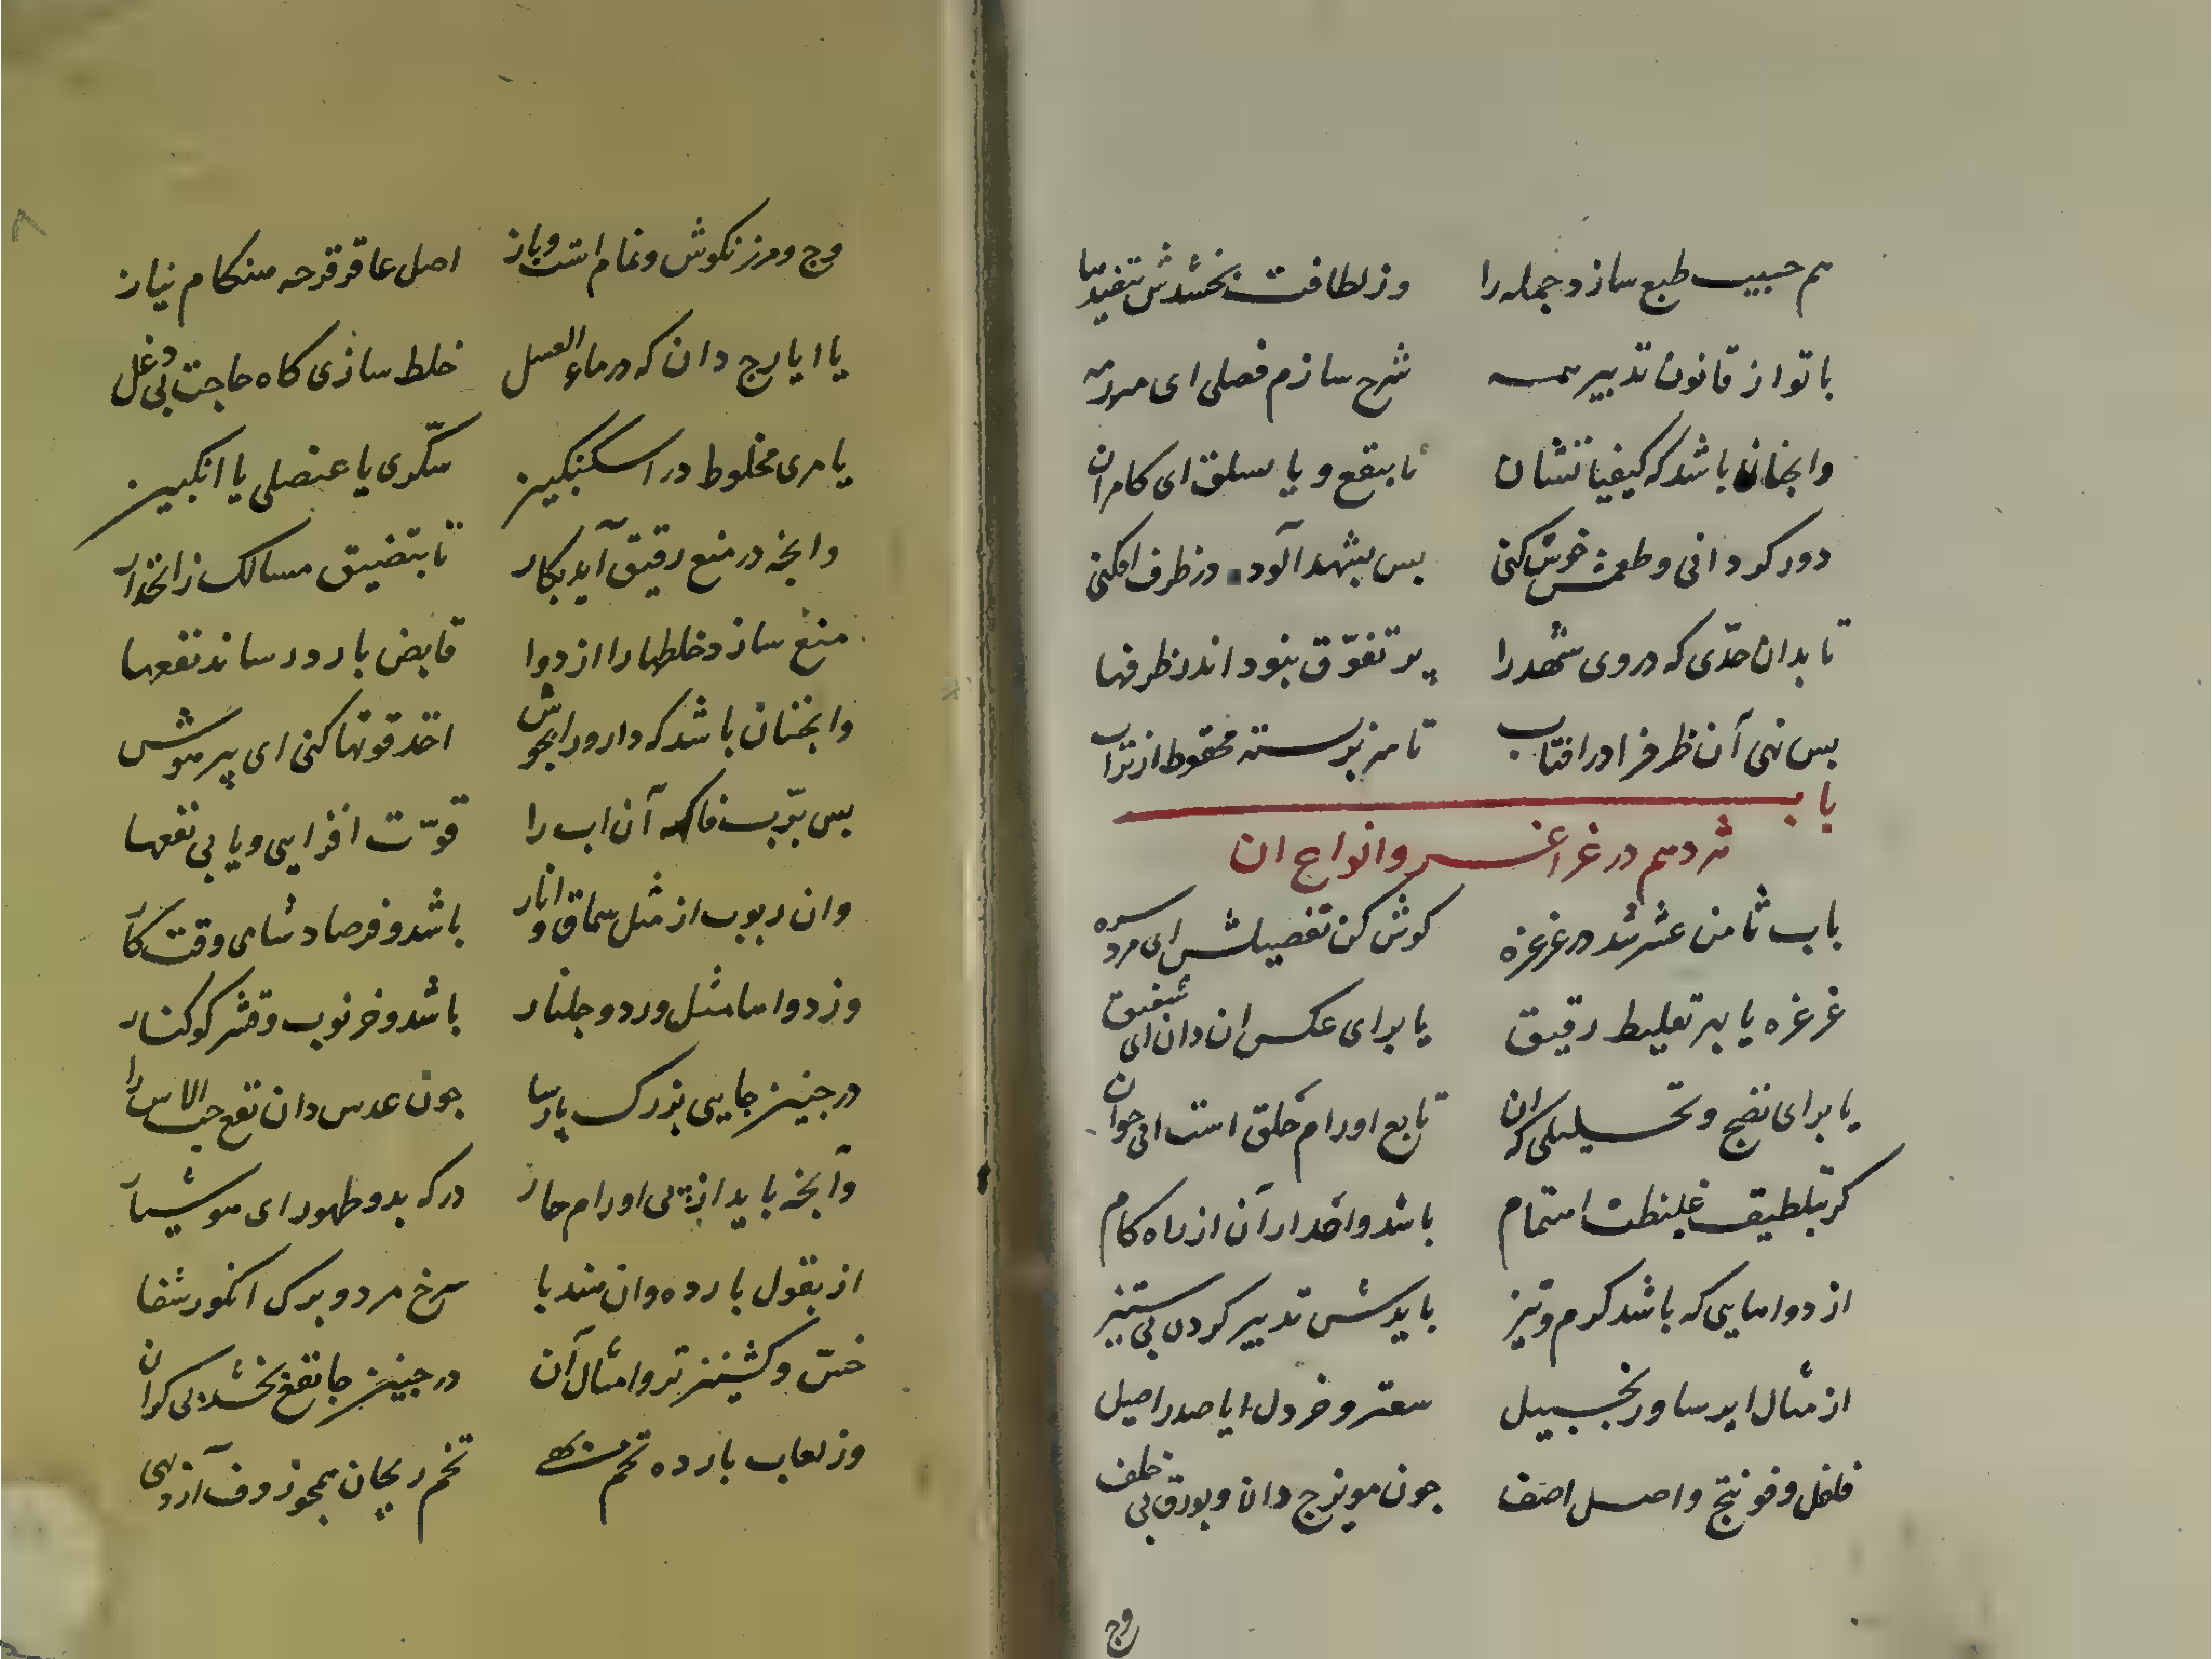 هم حبیب طبع سازد جمله را وز لطافت بخشدش تنفیذها
با تو از قانون تدبیر همه شرح سازم فصلی ای مرد مه
وانچنان باشد که کیفیاتشان تا بنقع و یا بسلق ای کامران
دور کردانی و طعمش خوش کنی پس بشهد آلود در ظرف افکنی
تا بدان حدی که در وی شهد را پر تفوّق نبود اندر ظرفها
پس نهی آن ظرف را در افتاب تا سر بسته محفوظ از تراب
باب
ثردهم در غراغر و انواع ان
باب ثامن عشر شد در غرغره کوش کن تفصیلش ای مرد سره
غرغره یا بهر تغلیظ رقیق یا برای عکس ان دان ای شفیق
یا برای نضج و تحلیلی که ان تابع اورام حلق است ای جوان
کر بتلطیف غلیظت اهتمام باشد و احدار آن از راه کام
از دواهایی که باشد کرم و تیز بایدش تدبیر کردن بی ستیز
از مثال ایرسا و زنجبیل سعتر و خردل ایا صدر اصیل
فلفل و فوتنج و اصل اصف چون مویزج دان و بورق بی خلف
وج
وج و مرزنکوش و نمام است و باز اصل عاقرقرحه هنکام نیاز
یا ایارج دان که در ماء العسل خلط سازی کاه حاجت بی دغل
یا مری مخلوط در اسکنبکین سکّری یا عنصلی یا انکبین
وانچه در منع رقیق آید بکار تا بتضییق مسالک ز انحدار
منع سازد خلطها را از دوا قابض بارد رساند نفعها
وانچنان باشد که دارو را بجوش اخذ قوتها کنی ای پیر هوش
پس بربّ فاکهه آن اب را قوّت افزایی و یابی نفعها
وان ربوب از مثل سماق و انار باشد و فرصاد شامی وقت کار
وز دواها مثل ورد و جلنار باشد و خرنوب و قشر کوکنار
در چنین جایی بزرک پارسا چون عدس دان نفع حب الاس را
وانچه باید از پی اورام حار درکه بدو ظهور ای هوشیار
از بقول بارده وان هندبا سرخ مرد و برک انکور شفا
خسّ و کشنیز تر و امثال آن در چنین جا نفع بخشد بی کران
وز لعاب بارده تخم بهی تخم ریحان همچو زوف آزدهی